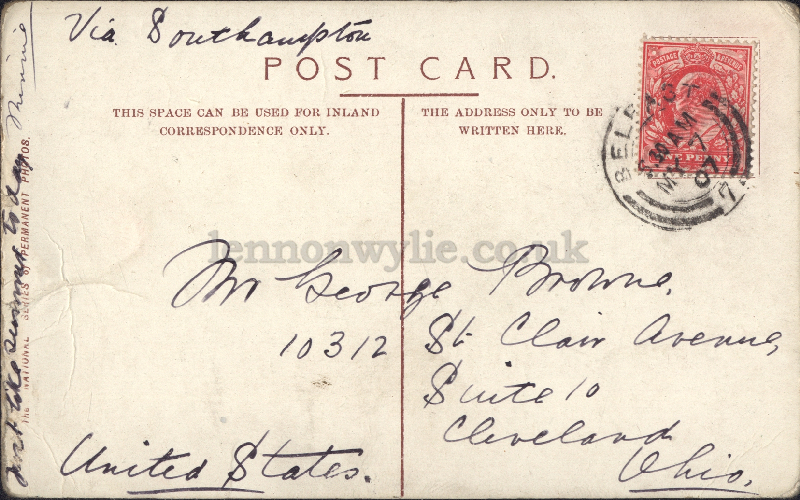 Via Southampton
POST CARD.
THIS SPACE CAN BE USED FOR INLAND
CORRESPONDENCE ONLY.
THE ADDRESS ONLY TO BE
WRITTEN HERE.
POSTAGE REVENUE
ONE PENNY
BELFAST
5.30 AM
MY 7
07
7
lennonwylie.co.uk
Mr George Browne,
10312 St Clair Avenue,
Suite 10
Cleveland
United States.
Ohio.
just like summer to day
Minnie
The NATIONAL SERIES of PERMANENT PHOTOS.